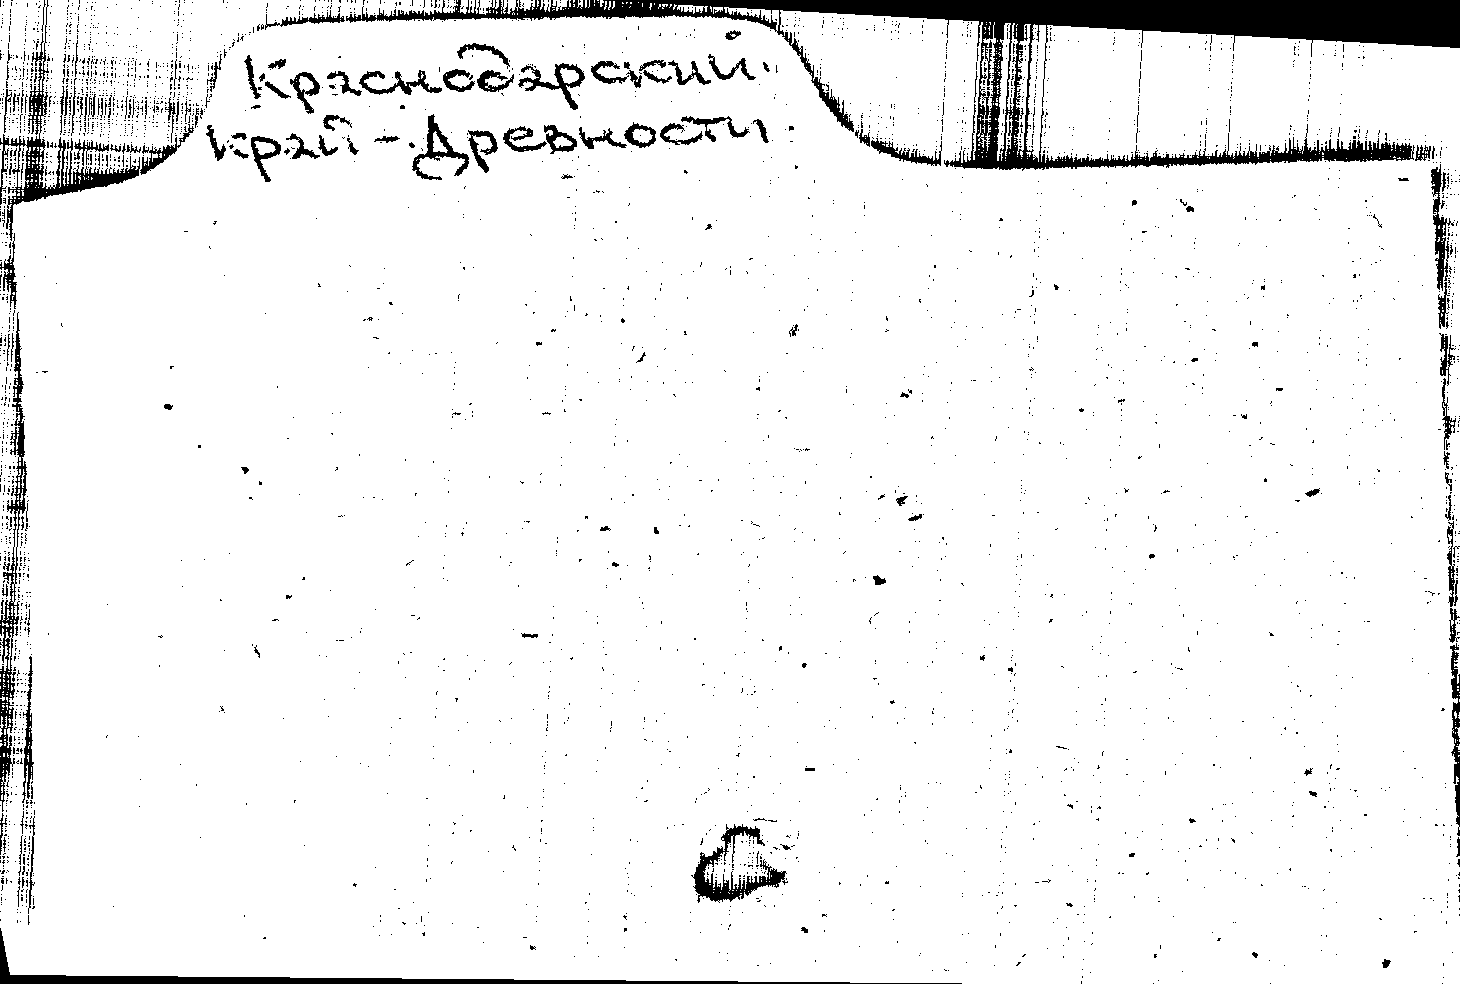 Краснодарский
край - Древности